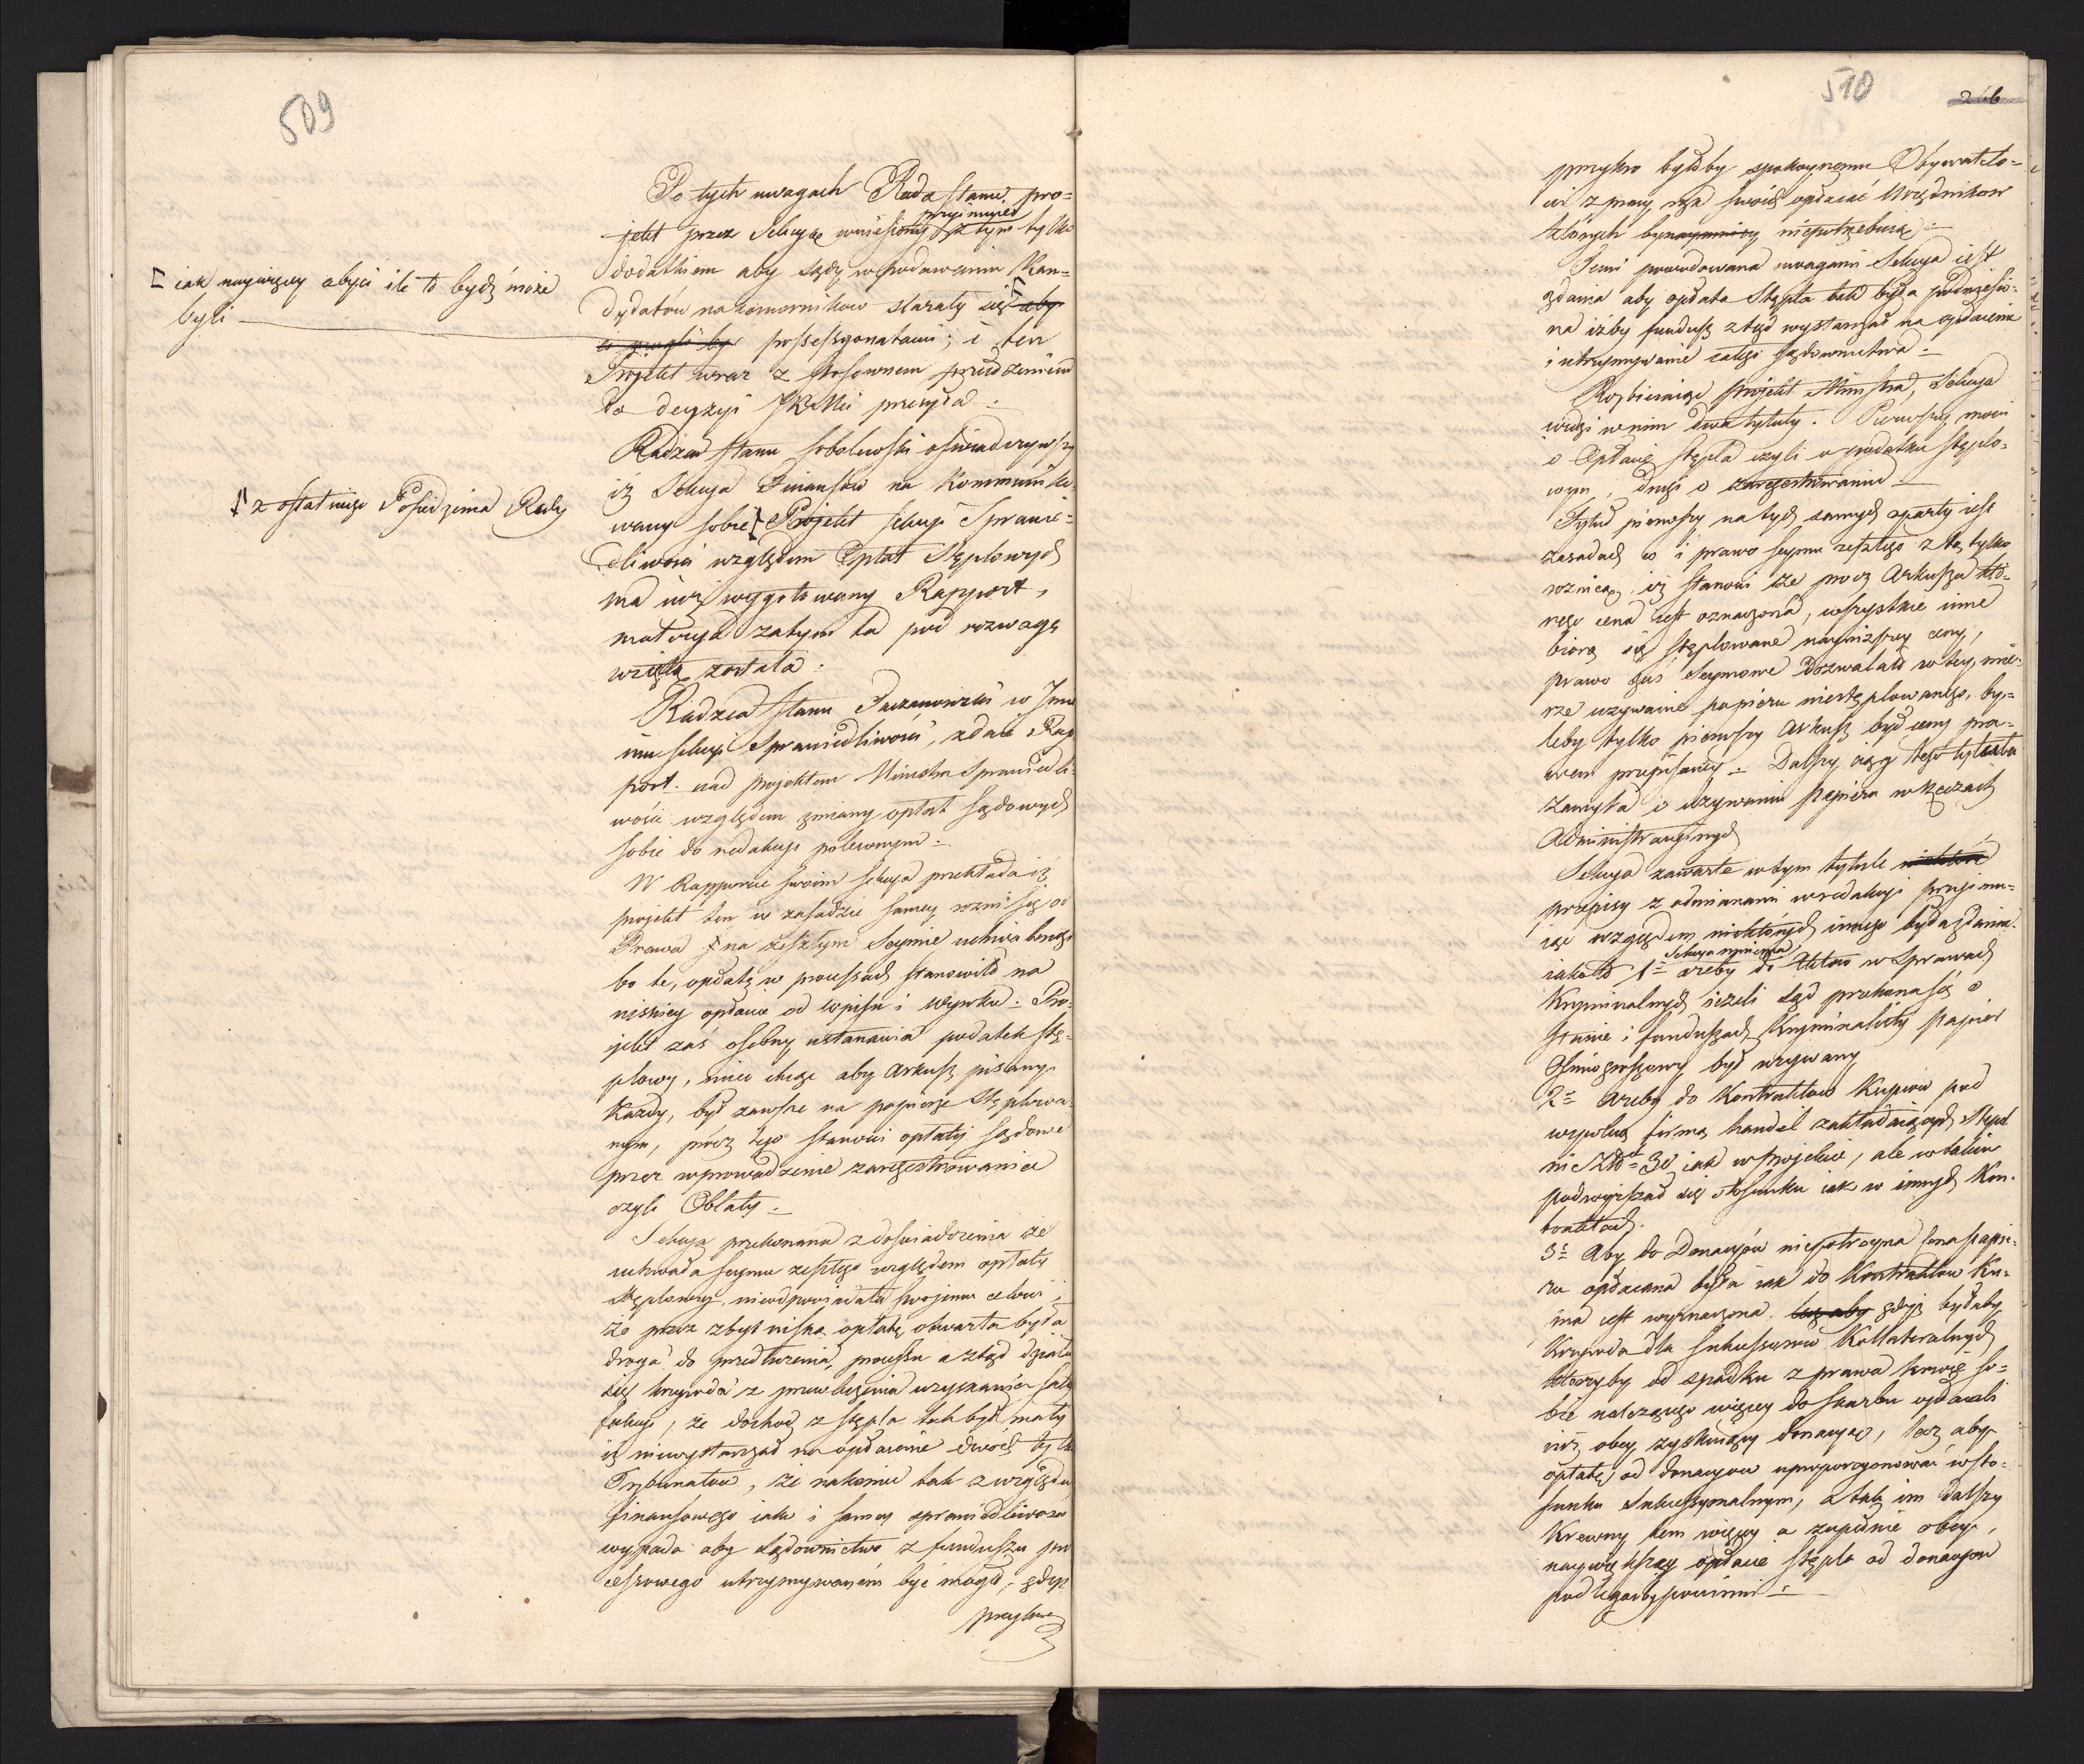 509
Po tych uwagach Rada Stanu pro=
jekt przez Sekcyą wniesiony przyimuie z tym tylko
dodatkiem aby Sądy w podawaniu Kan=
dydatów na komorników starały się aby
possessyonatami; i ten
Projekt wraz z stosownem
do decyzyi JKMci przesyła.
[ iak naywięcey abyci ile to bydź może
byli
Radzca Stanu Sobolewski oświadczywszy
iż Sekcya Finansów na Kommuniko=
wany sobie Projekt Sekcyi Sprawie=
dliwości względem Opłat Stęplowych
ma iuż wygotowany Rapport,
materya zatym ta pod rozwagę
wzięta została.
z ostatniego Posiedzenia Rady
Radzca Stanu w Imie
niu Sekcyi Sprawiedliwości, zdaie Rap
port nad projektem Ministra Sprawiedli=
wości względem zmiany opłat Sądowych
sobie do redakcyi poleconym.
W Rapporcie swoim Sekcya przekłada iż
projekt ten w zasadzie samey rożni się od
Prawa na zeszłym Seymie uchwalonego
bo te, opłatę w processach stanowiło na
niskiey opłacie od wpisu i wyroku. Pro=
jekt zaś osobny ustanawia podatek stę=
plowy, mieć chcąc aby arkusz pisany
Każdy, był zawsze na papierze Stęplowa=
nym, prócz tego stanowi opłaty Sądowe
przez wprowadzenie zaregestrowania
czyli Oblaty.
Sekcya przekonana z doświadczenia że
uchwała Seymu zeszłego względem opłaty
Stęplowey, nieodpowiadała swojemu celowi;
że przez zbyt niską opłatę otwarta była
droga do przedłużenia processu a ztąd działa
się krzywda z przewleczenia uzyskania satys
fakcyi, że dochod z stępla tak był mały
iż niewystarczał na opłacenie dwóch tylko
Trybunałów, że nakoniec tak z względu
finansowego iako i samey sprawiedliwości
wypada aby Sądownictwo z funduszu pro
cessowego utrzymywanem być mogło, gdyż
przykro
510
przykro byłoby spokoynemu Obywatelo=
wi z pracy rąk swoich opłacać Urzędników
których bynaymniey niepotrzebuie.
Temi powodowana uwagami Sekcya iest
zdania aby opłata Stępla tak była podniesio=
na iżby fundusz ztąd wystarczał na opłacenie
i utrzymywanie całego Sądownictwa.
Rozbieraiąc projekt Ministra, Sekcya
widzi w nim dwa tytuły. Pierwszy mówi
o Opłacie stępla czyli o podatku stęplo=
wym, drugi o zaregestrowaniu.
Tytuł pierwszy na tych samych oparty iest
zasadach co i prawo Seymu zeszłego z tą tylko
rożnicą, iż stanowi że prócz Arkusza któ=
rego cena iest oznaczona, wszystkie inne
biorą się stęplowane nayniższey ceny,
prawo zaś Seymowe dozwalało w tey mie=
rze używanie papieru niestęplowanego, by=
leby tylko pierwszy Arkusz był ceny pra=
wem przepisaney. Dalszy ciąg tego tytułu
zamyka o używaniu papieru w rzeczach
Administracyinych
Sekcya zawarte w tym tytule niektóre
przepisy z odmianami w redakcyi przyimu=
iąc względem niektórych innego była zdania
iako to 1° Sekcya mniemała żeby do Aktów w Sprawach
Kryminalnych ieżeli Sąd przekona się o
stanie i funduszach Kryminalisty papier
ośmiogroszowy był używany
2° ażeby do Kontraktów Kupców pod
wspólną firmą handel zakładaiących Stępel
nie Złł 30 iak w projekcie, ale w takim
podwyższał się stosunku iak w innych Kon=
traktach.
3° Aby do Donacyów niepotroyna cena papie=
ru opłacana była iak do Kontraktów Ku=
pna iest wyznaczona. lecz aby gdyż byłaby
Krzywda dla Sukcessorów Kollateralnych
którzyby od spadku z prawa krwi so=
bie należącego więcey do Skarbu opłacali
niż obcy zyskuiący donacyę, lecz aby
opłatę od donacyów uproporcyonować w sto=
sunku Sukcessyonalnym, a tak im dalszy
Krewny tem więcey a zupełnie obcy,
naywiększey opłacie stępla od donacyów
podlegaćby powinni.